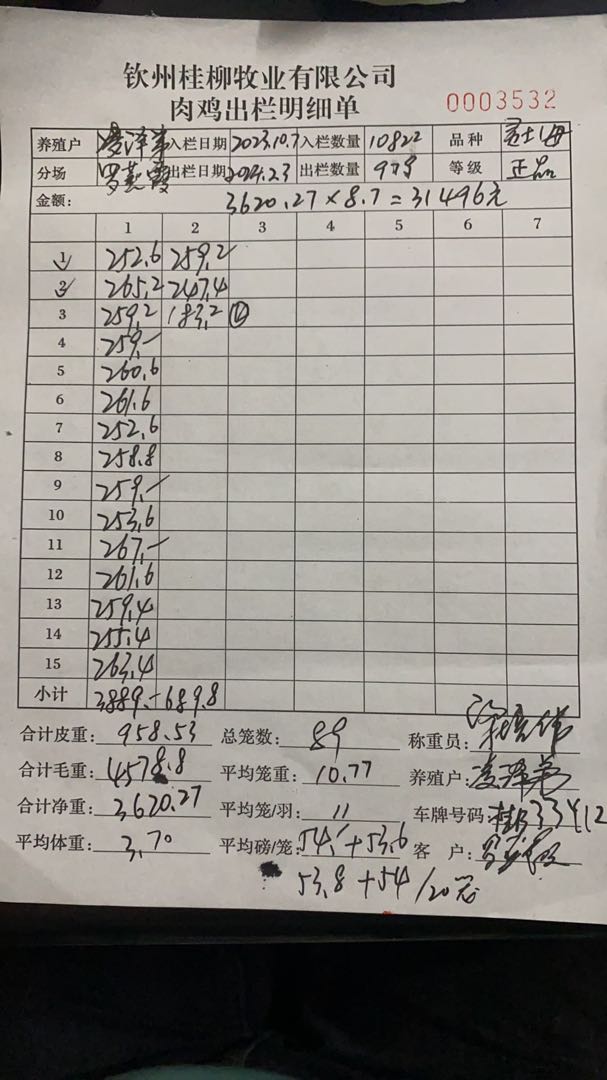 钦州桂柳牧业有限公司
肉鸡出栏明细单 0003532
养殖户 入栏日期 2023.10.7 入栏数量 10822 品种
分场 出栏日期 2024.2.3 出栏数量 979 等级 正品
金额: 3620.27×8.7=31496元
1 2 3 4 5 6 7
1 252.6 259.2
2 265.2 247.4
3 259.2 183.2 ⑫
4 259.-
5 260.6
6 261.6
7 252.6
8 258.8
9 259.-
10 253.6
11 267.-
12 261.6
13 259.4
14 255.4
15 263.4
小计 3889.- 689.8
合计皮重: 958.53 总笼数: 89 称重员:
合计毛重: 4578.8 平均笼重: 10.77 养殖户:
合计净重: 3620.27 平均笼/羽: 11 车牌号码: 33412
平均体重: 3.70 平均磅/笼: 54.-+53.6 客户:
53.8+54/20笼